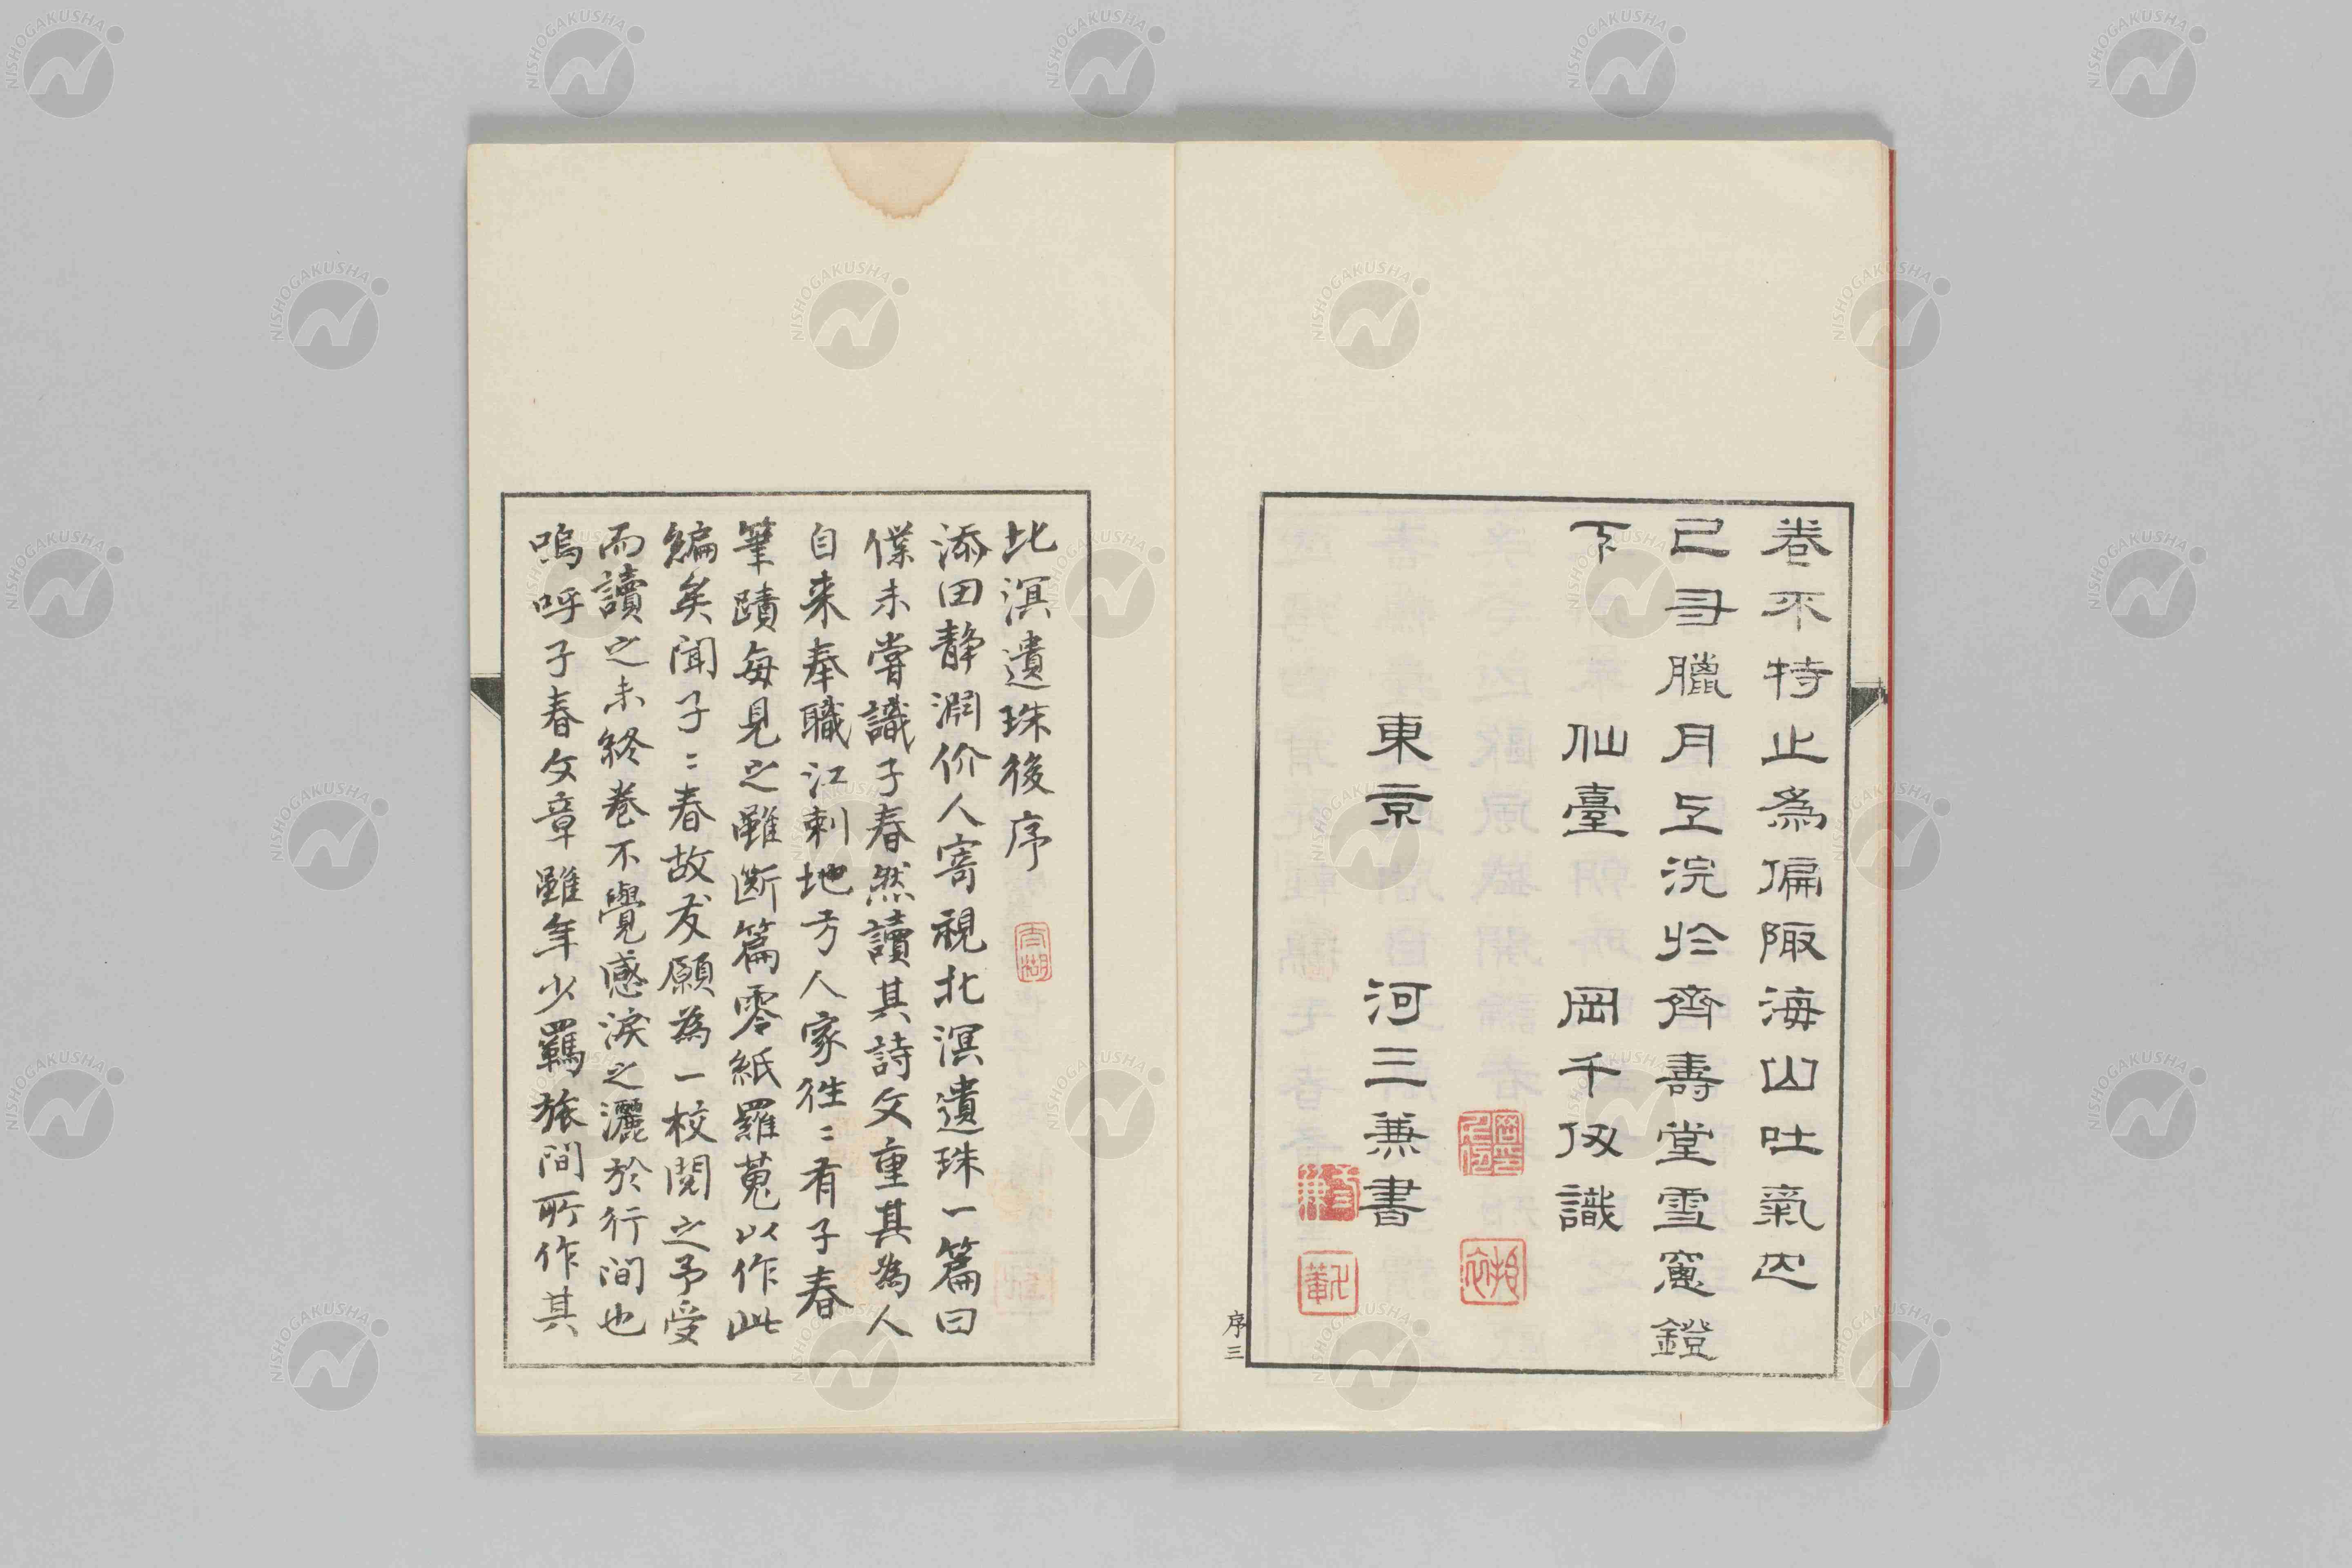 卷不特止為偏陬海山吐氣也
己丑臘月上浣於齊壽堂雪窻鐙
下　仙臺　岡千仭識
東京　河三兼書
序三
北溟遺珠後序
添田靜淵价人寄視北溟遺珠一篇曰
僕未嘗識子春然讀其詩文重其為人
自来奉職江刺地方人家徃〻有子春
筆蹟每見之雖斷篇零紙羅蒐以作此
編矣聞子〻春故友願為一校閱之予受
而讀之未終卷不覺感淚之灑於行間也
嗚呼子春文章雖年少羈旅間所作其
NISHOGAKUSHA